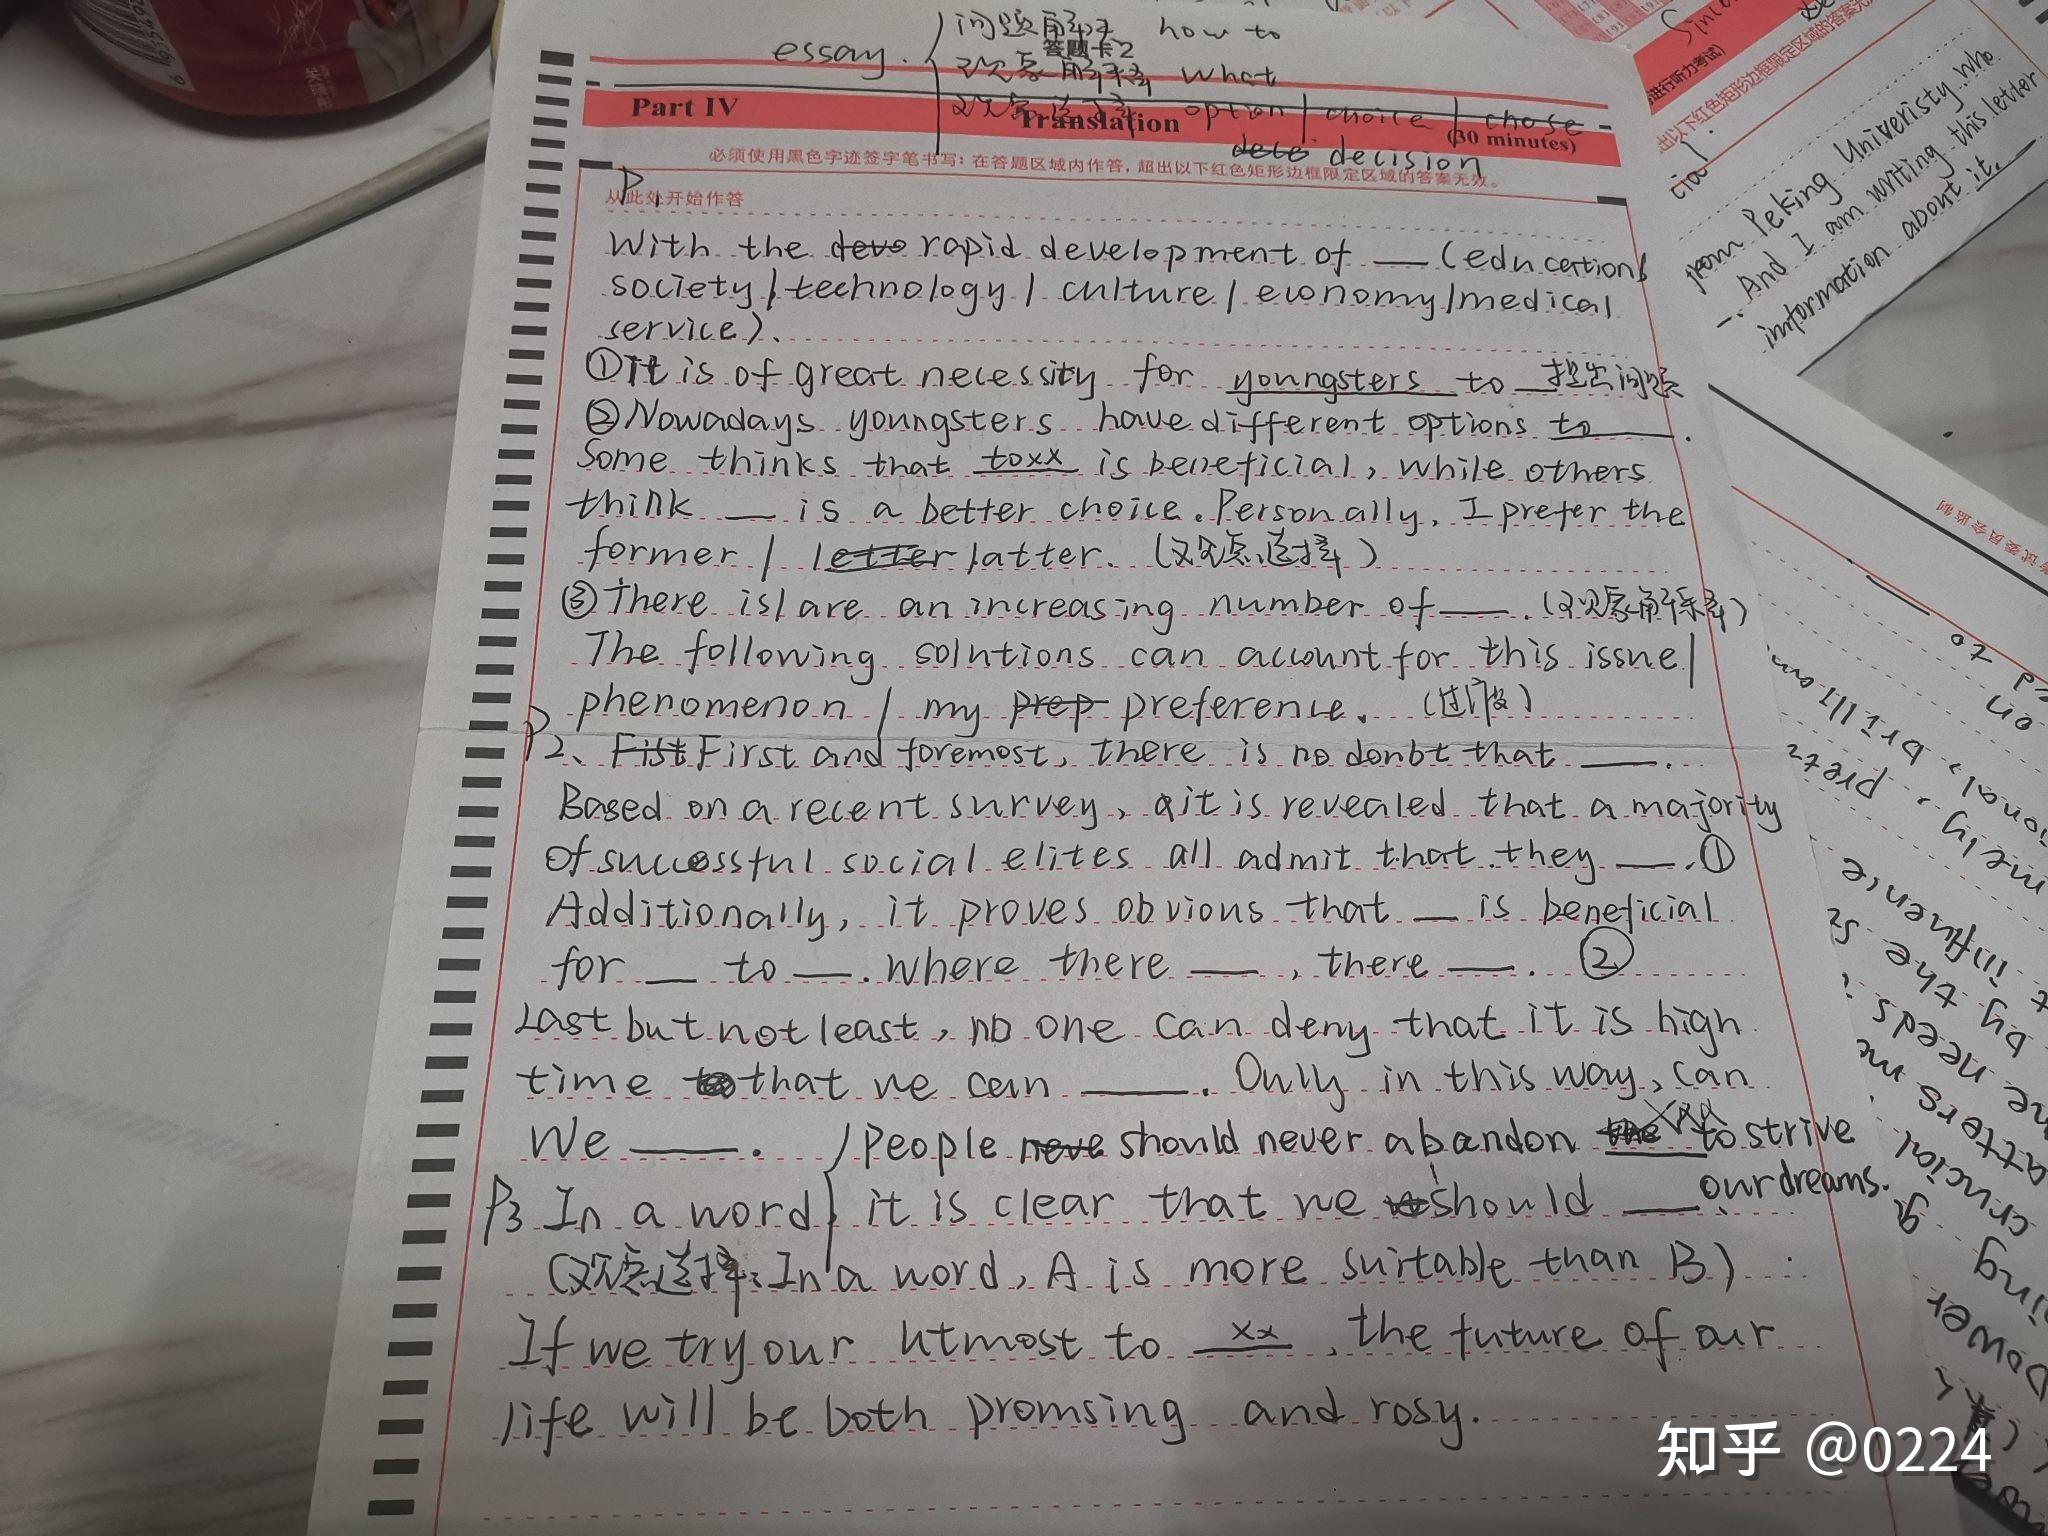 essay.
问题解决 how to
答题卡2
现象解释 what
观点选择 option / choice / chose
dece decision
Part IV Translation (30 minutes)
必须使用黑色字迹签字笔书写：在答题区域内作答，超出以下红色矩形边框限定区域的答案无效。
P1
从此处开始作答
With the deve rapid development of __ (education/
society/technology/culture/economy/medical
service).
①It is of great necessity for youngsters to __提出问题
②Nowadays youngsters have different options to ____.
Some thinks that toxx is beneficial, while others
think __ is a better choice. Personally, I prefer the
former / letter latter. (观点选择)
③There is/are an increasing number of __. (现象解释)
The following solutions can account for this issue/
phenomenon / my prep preference. (过渡段)
P2、Fist First and foremost, there is no doubt that __.
Based on a recent survey, it is revealed that a majority
of successful social elites all admit that they __. ①
Additionally, it proves obvious that __ is beneficial
for __ to __. Where there __, there __. ②
Last but not least, no one can deny that it is high
time that we can ____. Only in this way, can
We ____.
People neve should never abandon to strive
our dreams.
P3 In a word, it is clear that we should __
(观点选择: In a word, A is more suitable than B)
If we try our utmost to xx, the future of our
life will be both promsing and rosy.
from Peking Univeristy who
. And I am writing this letter
information about it.
知乎 @0224